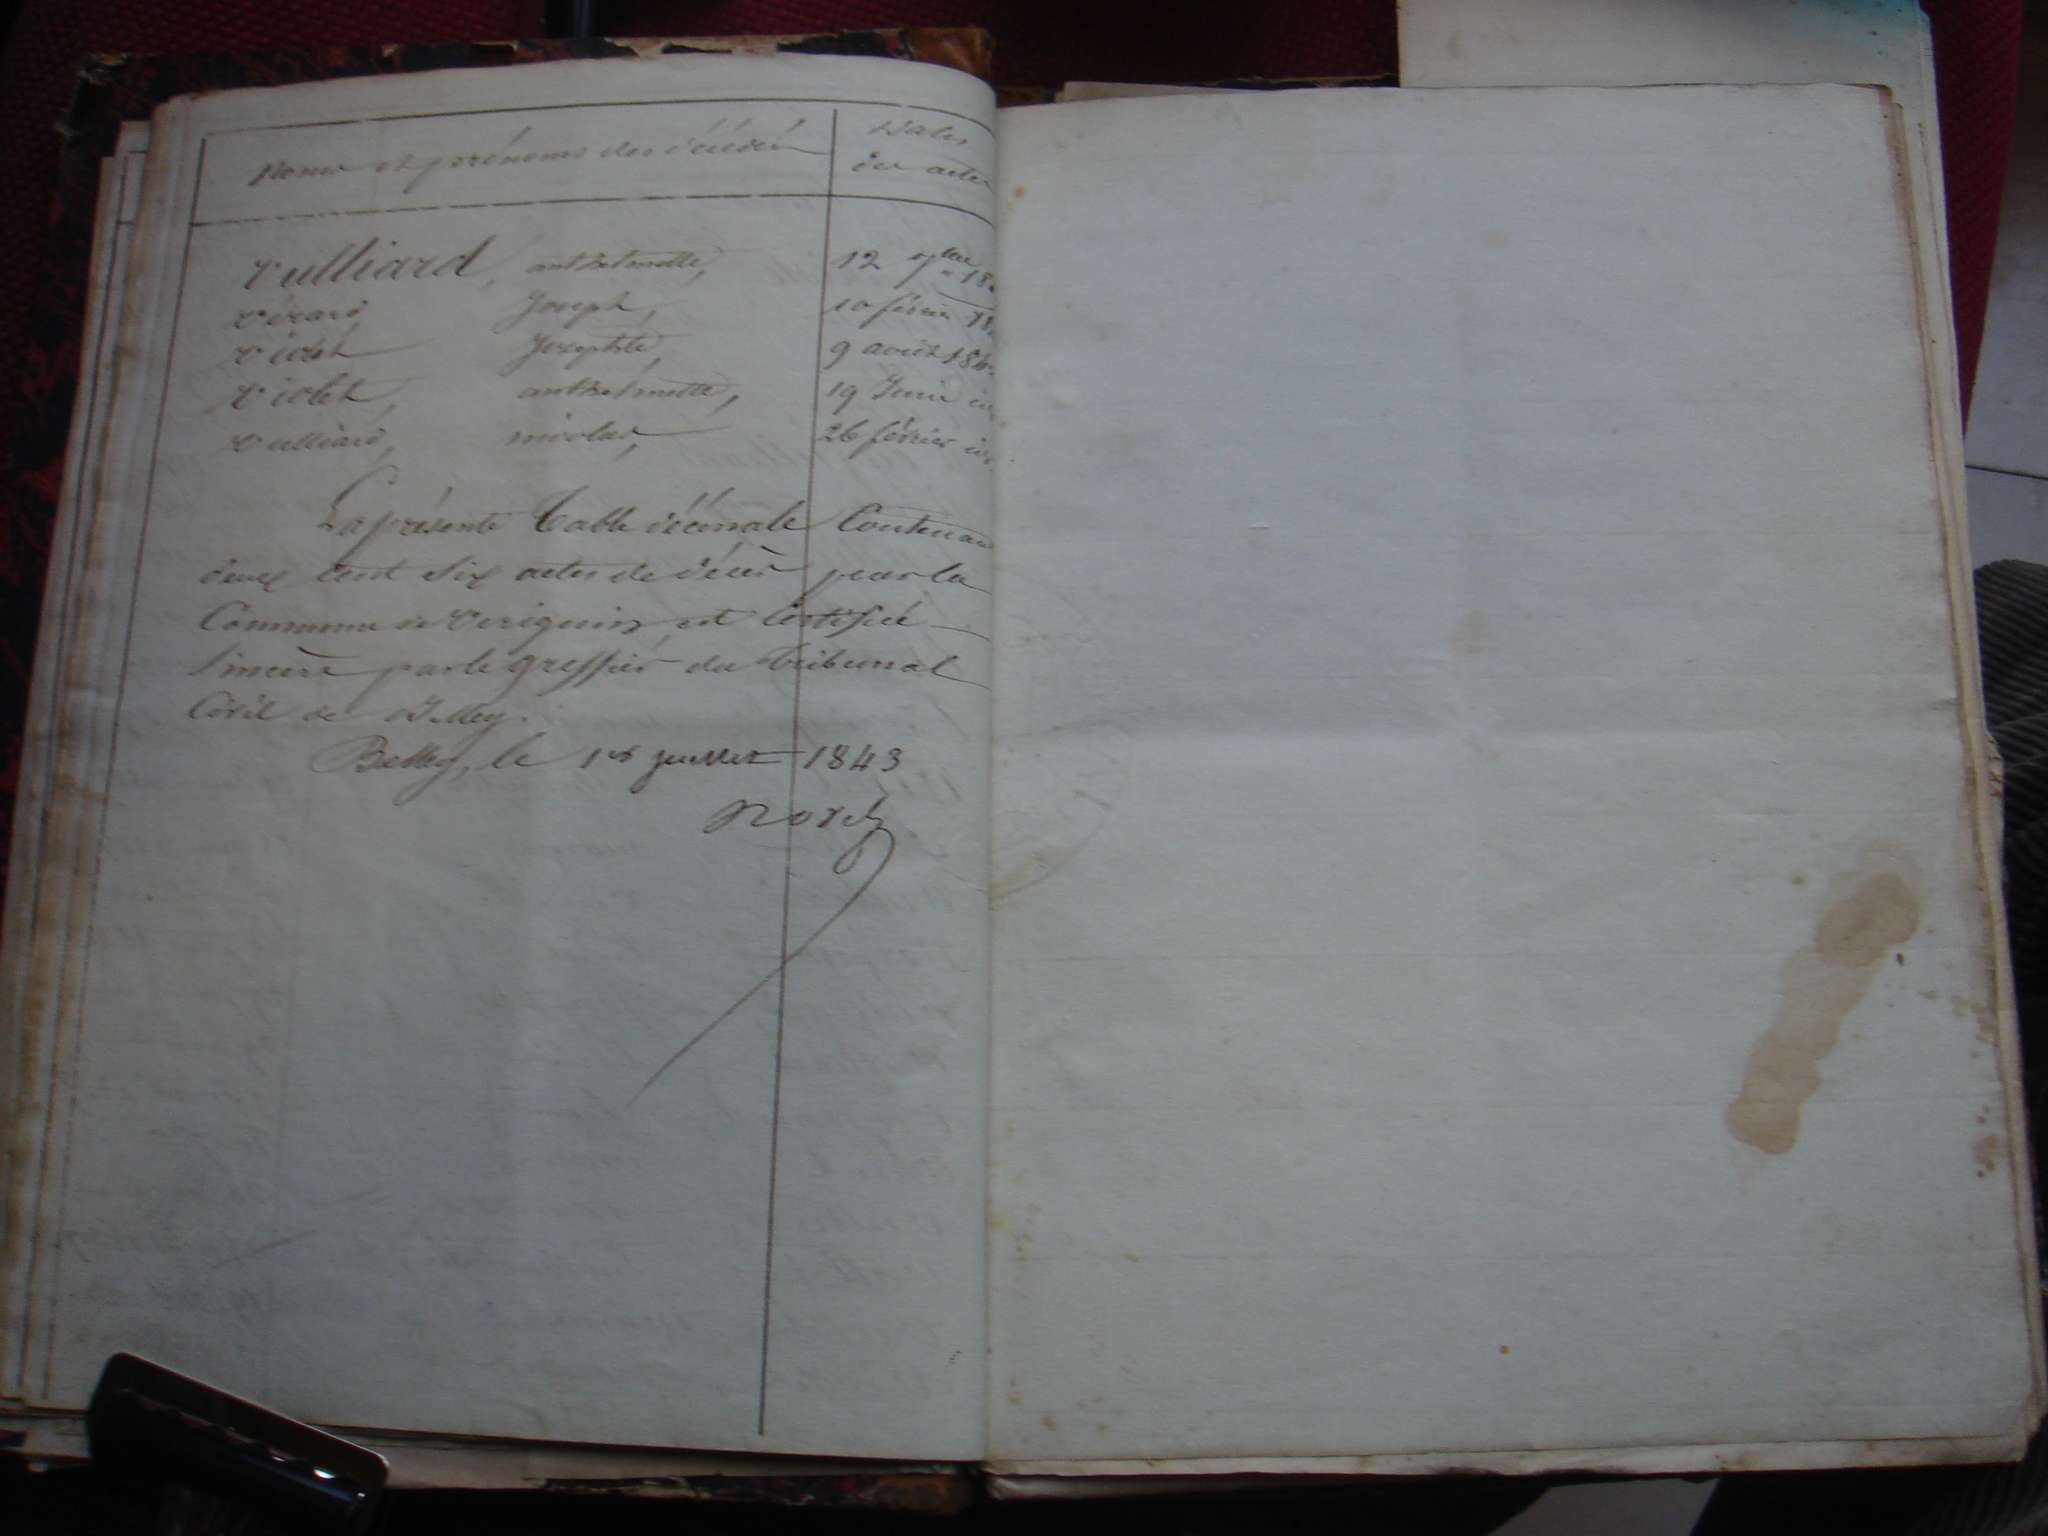 Noms et prénoms des décédés
Dates
des actes
Vulliard, anthelmette, 12 7bre 18
Vérard Joseph, 10 février 18
Violet Josephte, 9 août 184
Violet, anthelmette, 19 Juin
Vulliard, nicolas, 26 février
La présente Table décennale Contenant
deux cent six actes de décès pour la
Commune de Virignin, est Certifiée
Sincère par le greffier du Tribunal
Civil de Belley.
Belley, le 1er juillet 1843